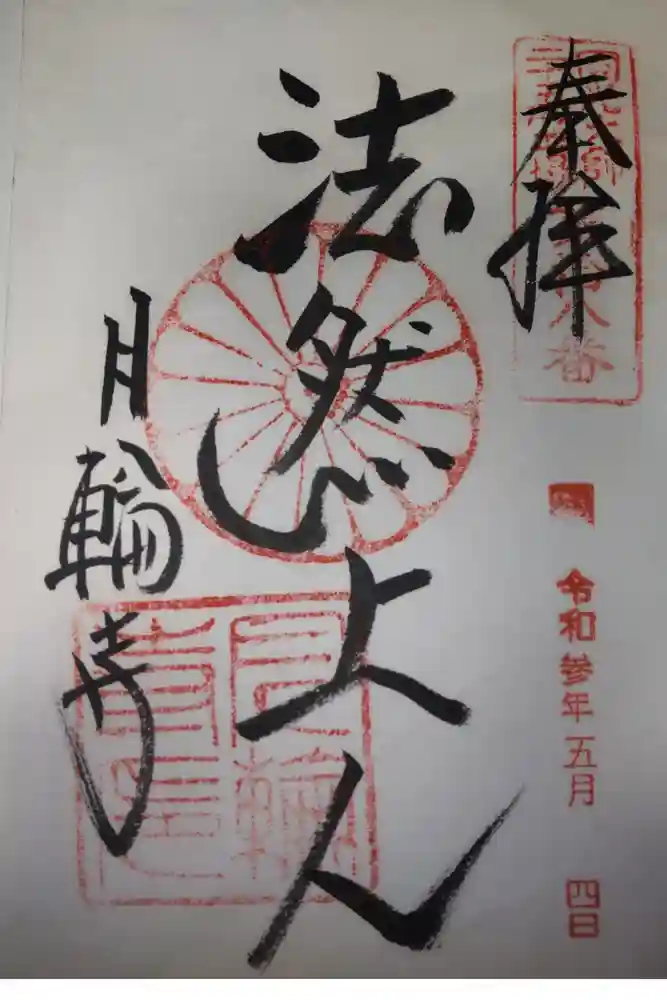 奉拝
令和参年五月
四日
法然上人
月輪寺